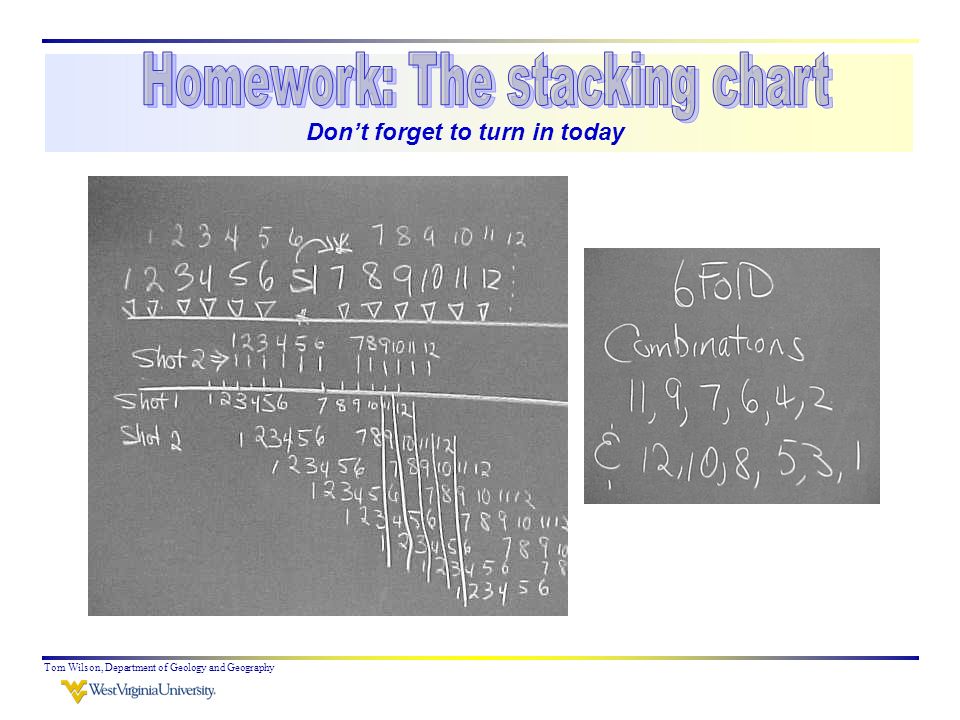 Homework: The stacking chart
Don't forget to turn in today
1 2 3 4 5 6 7 8 9 10 11 12
1 2 3 4 5 6 S 7 8 9 10 11 12
1 2 3 4 5 6 7 8 9 10 11 12
Shot 2 ⇒
Shot 1 1 2 3 4 5 6 7 8 9 10 11 12
Shot 2 1 2 3 4 5 6 7 8 9 10 11 12
1 2 3 4 5 6 7 8 9 10 11 12
1 2 3 4 5 6 7 8 9 10 11 12
1 2 3 4 5 6 7 8 9 10 11 12
1 2 3 4 5 6 7 8 9 10
1 2 3 4 5 6 7 8
1 2 3 4 5 6
6 FOLD
Combinations
11, 9, 7, 6, 4, 2
& 12, 10, 8, 5, 3, 1
Tom Wilson, Department of Geology and Geography
WestVirginiaUniversity.